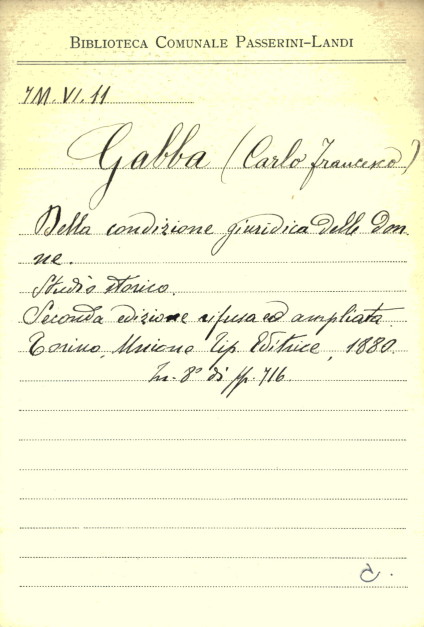 BIBLIOTECA COMUNALE PASSERINI-LANDI
7M.VI.11
Gabba (Carlo Francesco)
Della condizione giuridica delle don
ne.
Studio storico.
Seconda edizione rifusa ed ampliata.
Torino, Unione Tip. Editrice, 1880.
In-8° di pp. 716
C.